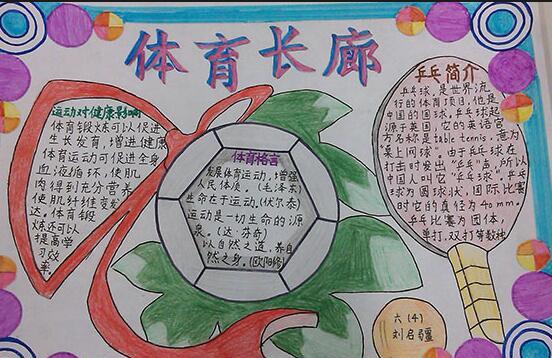 体育长廊
运动对健康影响
体育锻炼可以促进
生长发育，增进健康
体育运动可促进全身
血液循环，使肌
肉得到充分营养
使肌纤维变发
达。体育锻
炼还可以
提高学
习效
率。
体育格言
发展体育运动，增强
人民体质。（毛泽东）
生命在于运动。（伏尔泰）
运动是一切生命的源
泉。（达·芬奇）
以自然之道，养自
然之身。（欧阳修）
乒乓简介
乒乓球，是世界流
行的体育项目，他是
中国的国球，乒乓球起
源于英国，它的英语官
方名称是table tennis，意为
"桌上网球"。由于乒乓球在
打击时发出"乒乓"声，所以
中国人叫它"乒乓球"。乒乓
球为圆球状，国际比赛
时它的直径为40mm。
乒乓比赛为团体，
单打，双打等数种
六（4）
刘启疆